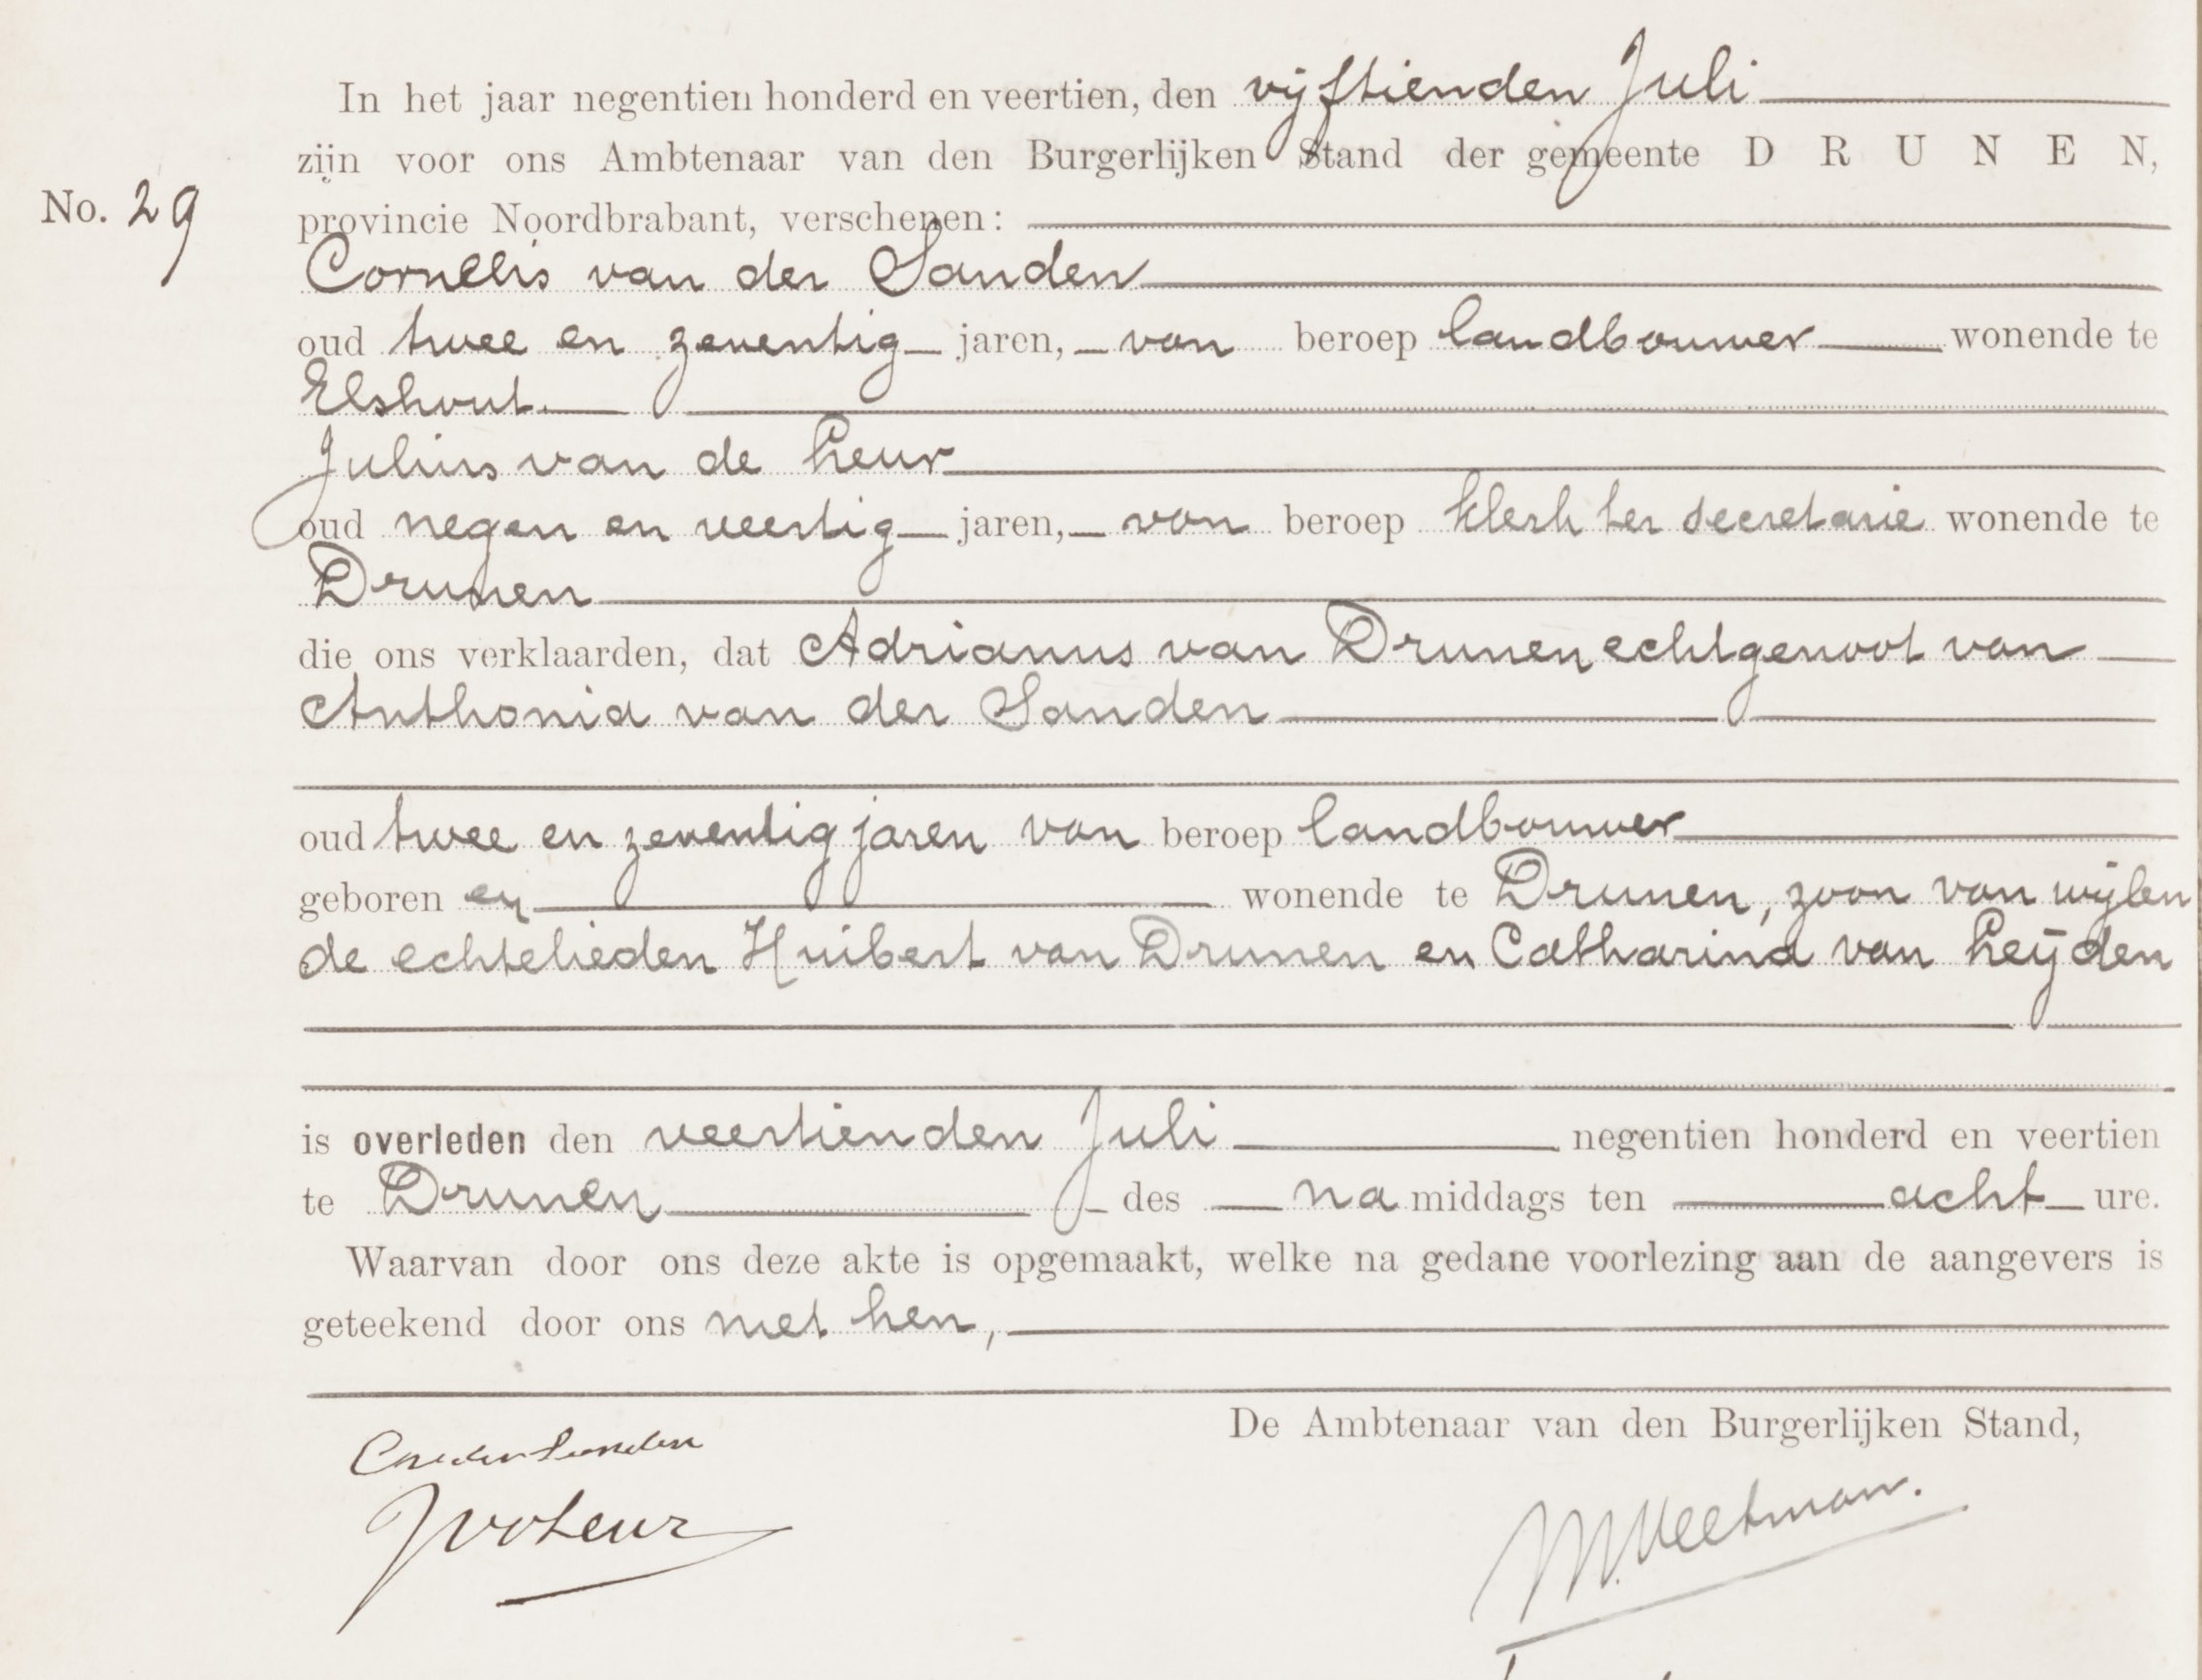 In het jaar negentien honderd en veertien, den vijftienden Juli
zijn voor ons Ambtenaar van den Burgerlijken Stand der gemeente DRUNEN,
No. 29
provincie Noordbrabant, verschenen:
Cornelis van der Sanden
oud twee en zeventig jaren, van beroep landbouwer wonende te
Elshout.
Julius van de Leur
oud negen en veertig jaren, van beroep klerk ter secretarie wonende te
Drunen
die ons verklaarden, dat Adrianus van Drunen echtgenoot van
Anthonia van der Sanden
oud twee en zeventig jaren van beroep landbouwer
geboren en wonende te Drunen, zoon van wijlen
de echtelieden Huibert van Drunen en Catharina van Leijden
is overleden den veertienden Juli negentien honderd en veertien
te Drunen des na middags ten acht ure.
Waarvan door ons deze akte is opgemaakt, welke na gedane voorlezing aan de aangevers is
geteekend door ons met hen,
De Ambtenaar van den Burgerlijken Stand,
C van der Sanden
JvdLeur